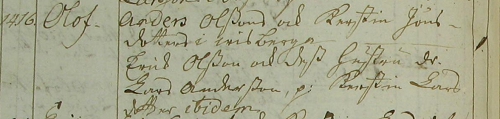 1416. Olof. Anders Olssons och Kerstin Jöns-
dotters i irisberga
Erik Olsson och dess hustru dr.
Lars Andersson, p: Kerstin Lars
dotter ibidem